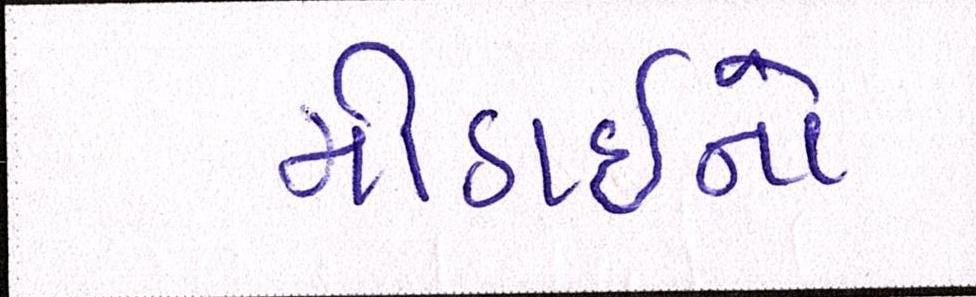 મીઠાઈનો